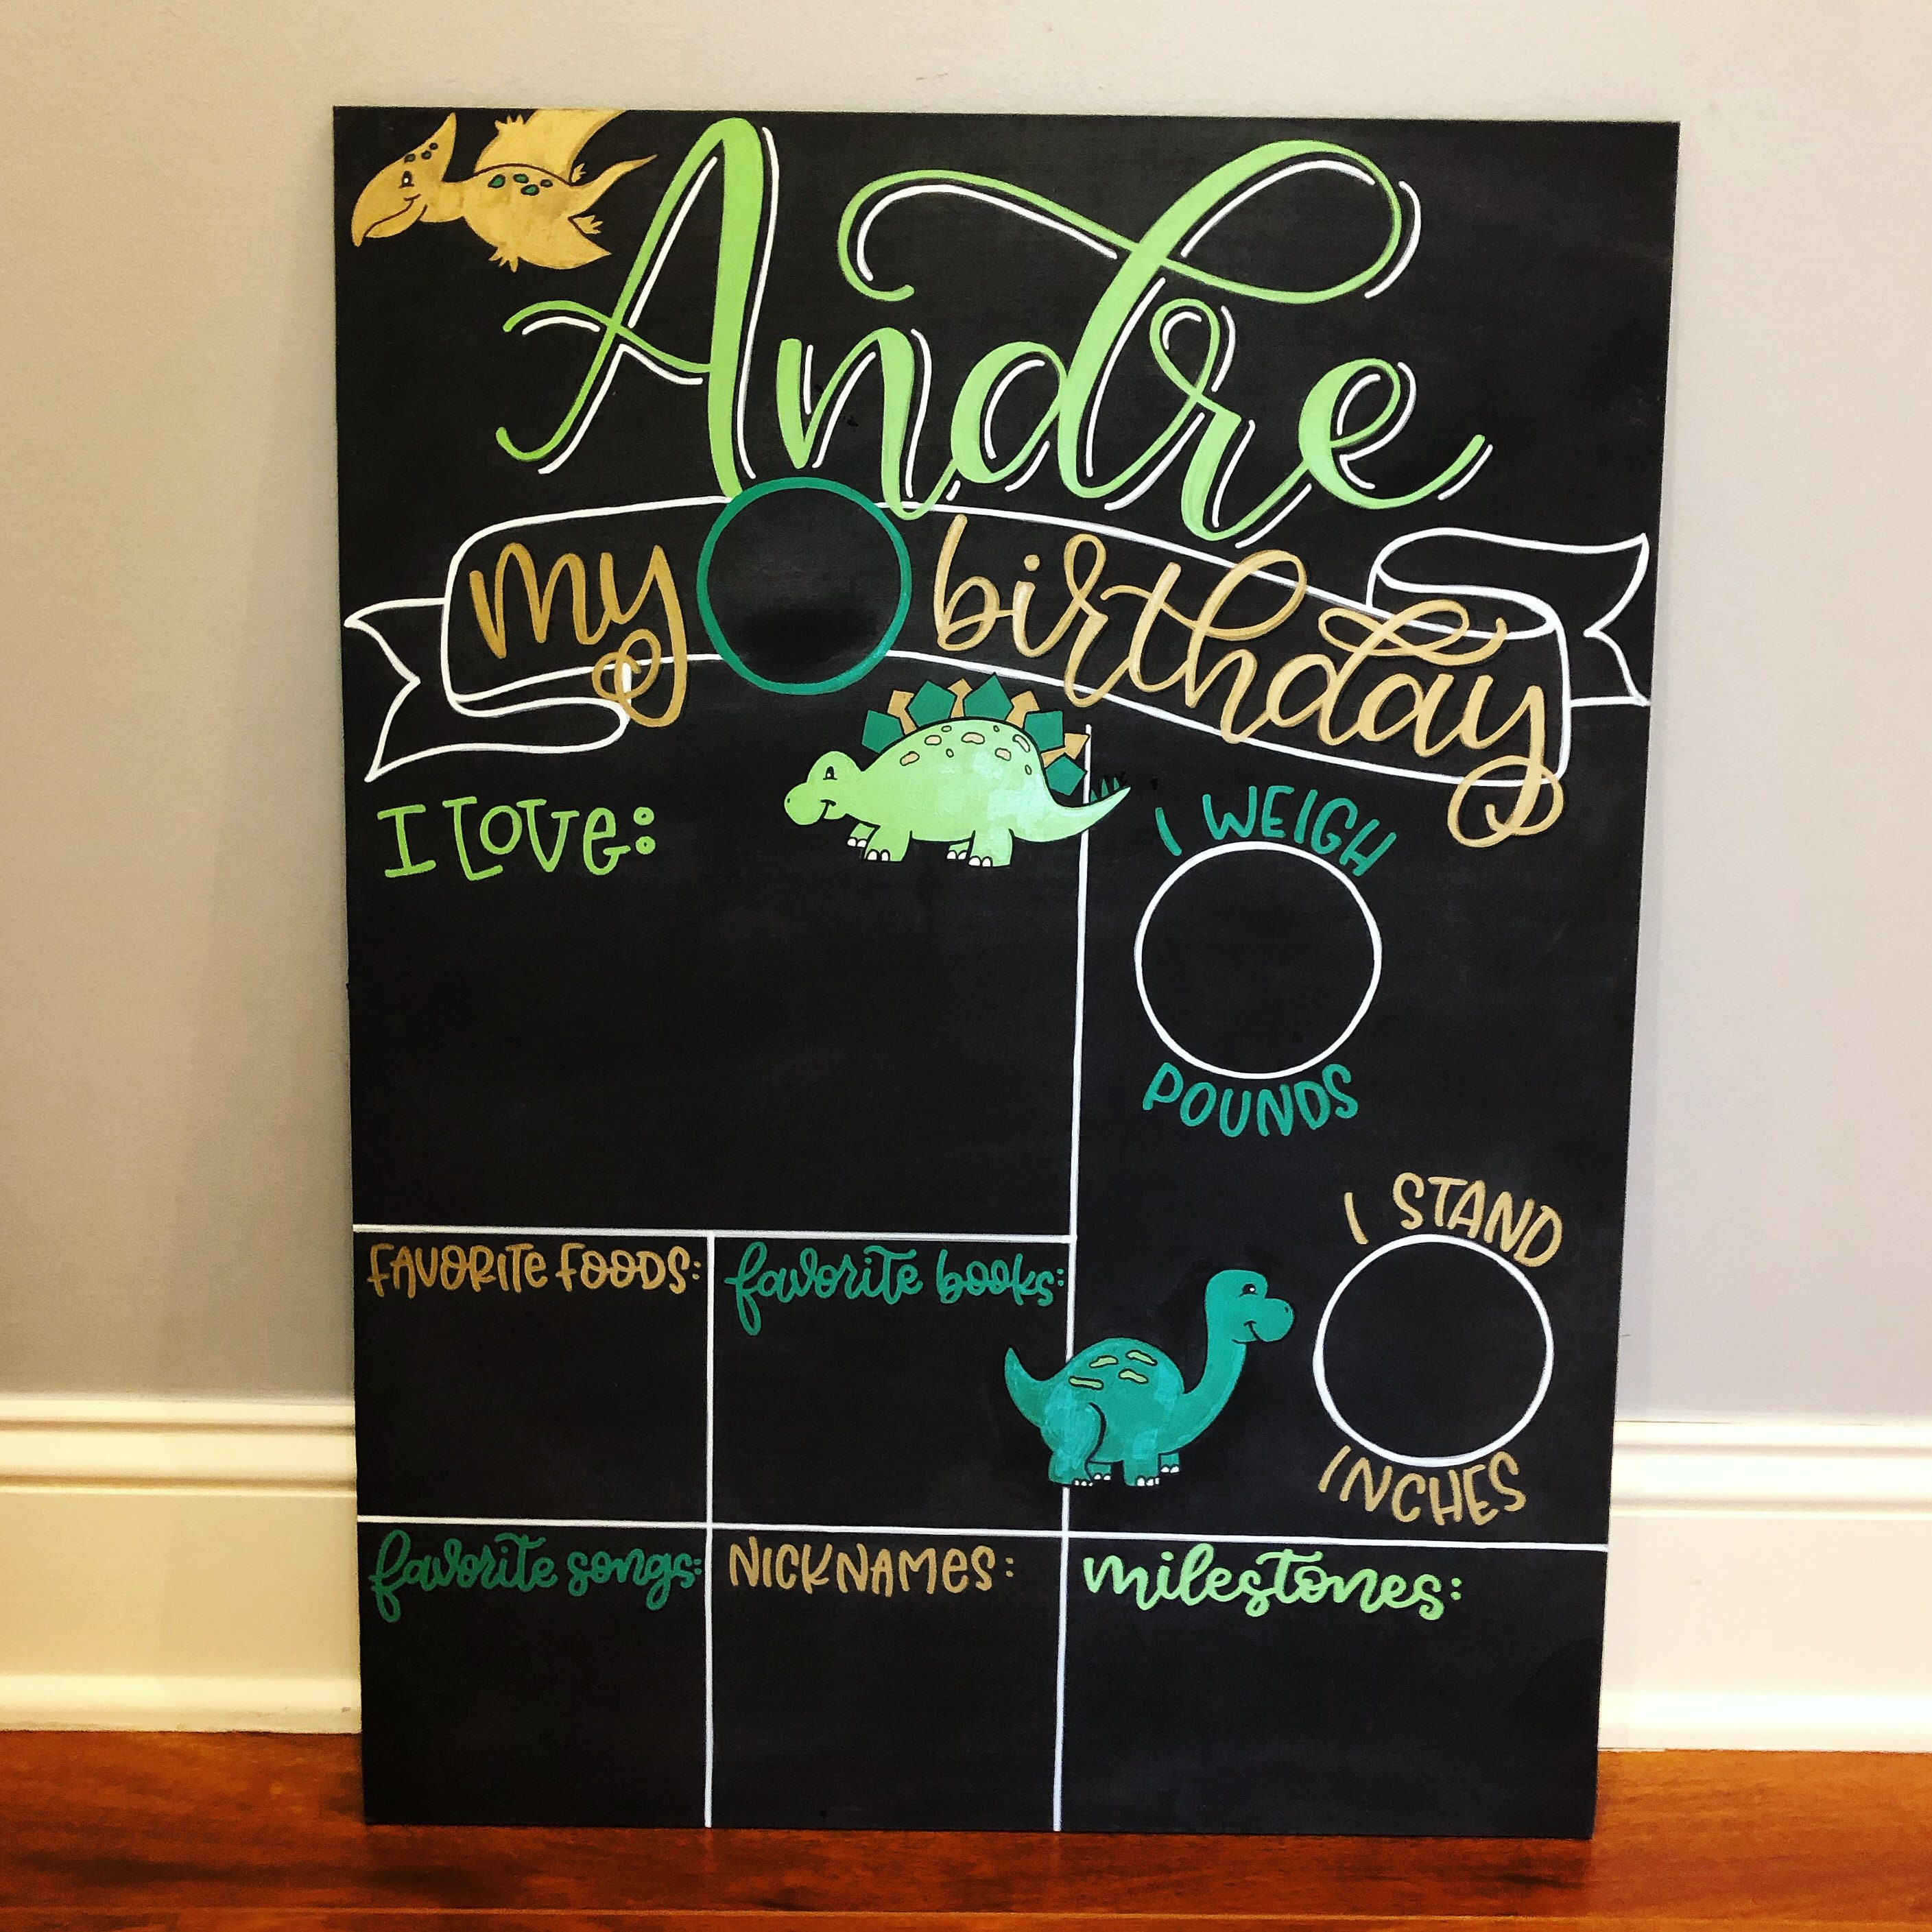 Andre
my birthday
I LOVE:
I WEIGH
POUNDS
I STAND
INCHES
FAVORITE FOODS:
favorite books:
favorite songs:
NICKNAMES:
milestones: